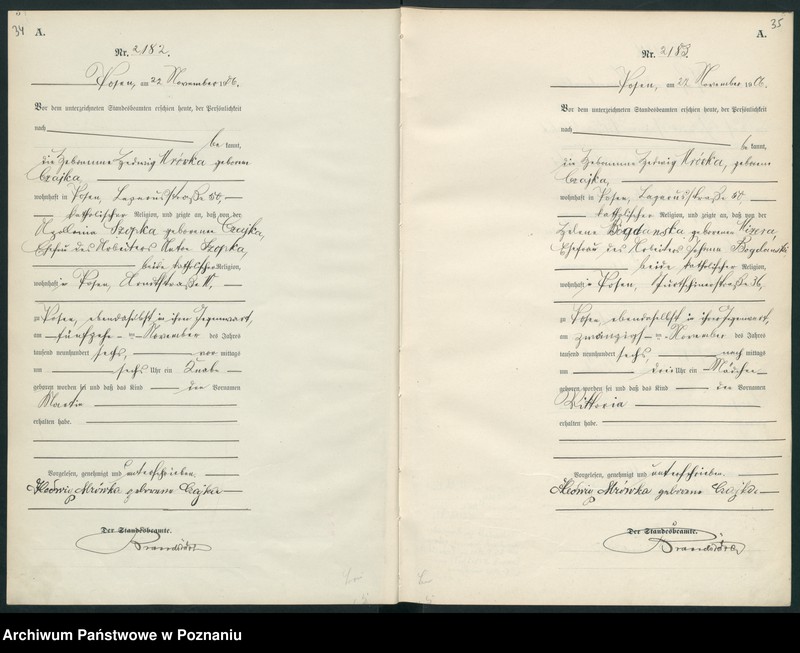 34 A.
Nr. 2182.
Posen, am 22 November 1906.
Vor dem unterzeichneten Standesbeamten erschien heute, der Persönlichkeit
nach
be kannt,
die Hebamme Hedwig Mrówka geborene
Czajka,
wohnhaft in Posen, Lazarusstraße 50,
katholischer Religion, und zeigte an, daß von der
Apollonia geborenen Czajka,
Ehefrau des Arbeiters
beide katholischer Religion,
wohnhaft in Posen,
zu Posen, ebendaselbst in ihrer Gegenwart,
am fünfzehn ten November des Jahres
tausend neunhundert sechs, vor mittags
um sechs Uhr ein Knabe
geboren worden sei und daß das Kind den Vornamen
Martin
erhalten habe.
Vorgelesen, genehmigt und unterschrieben.
Hedwig Mrówka geborene Czajka
Der Standesbeamte.
35
A.
Nr. 2183.
Posen, am 22 November 1906.
Vor dem unterzeichneten Standesbeamten erschien heute, der Persönlichkeit
nach
be kannt,
die Hebamme Hedwig Mrówka, geborene
Czajka,
wohnhaft in Posen, Lazarusstraße 50,
katholischer Religion, und zeigte an, daß von der
Helene Bogdanska geborenen
Ehefrau des Arbeiters Johann Bogdanski,
beide katholischer Religion,
wohnhaft in Posen, 36,
zu Posen, ebendaselbst in ihrer Gegenwart,
am zwanzigs ten November des Jahres
tausend neunhundert sechs, nach mittags
um drei Uhr ein Mädchen
geboren worden sei und daß das Kind den Vornamen
Viktoria
erhalten habe.
Vorgelesen, genehmigt und unterschrieben.
Hedwig Mrówka geborene Czajka
Der Standesbeamte.
Archiwum Państwowe w Poznaniu